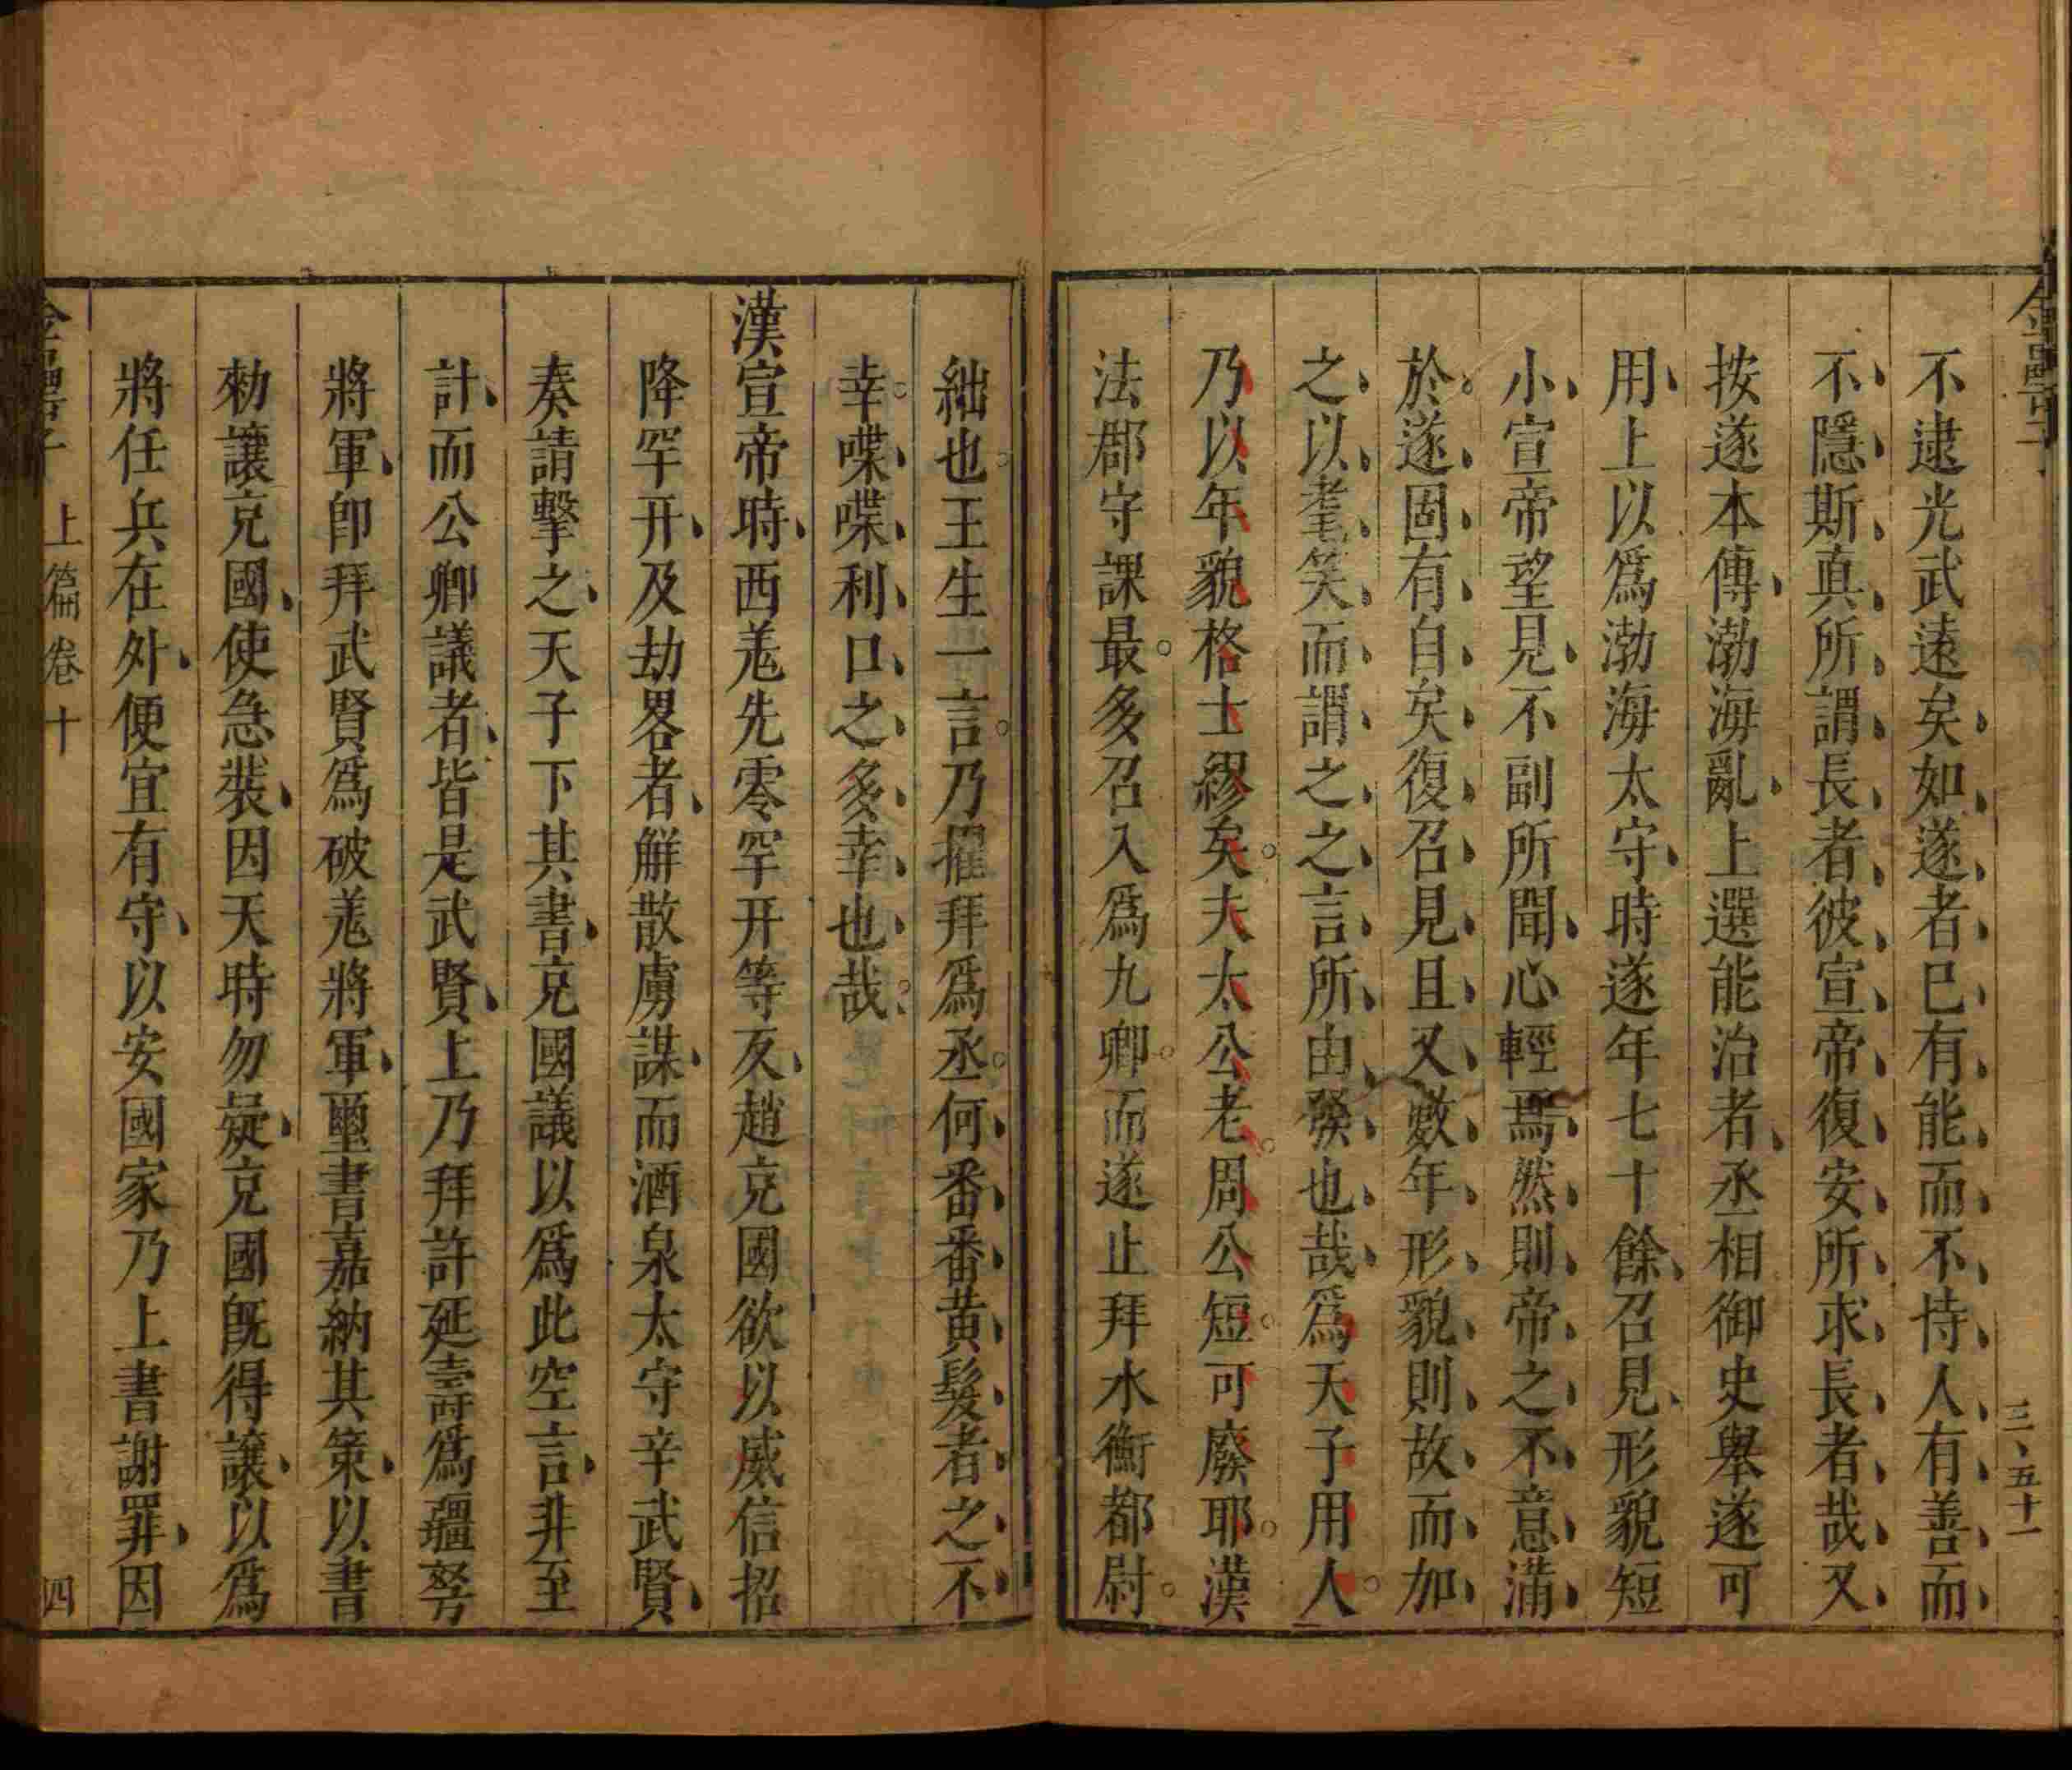 不逮光武遠矣如遂者已有能而不恃人有善而
不隱斯真所謂長者彼宣帝復安所求長者哉又
按遂本傳渤海亂上選能治者丞相御史舉遂可
用上以爲渤海太守時遂年七十餘召見形貌短
小宣帝望見不副所聞心輕焉然則帝之不意滿
於遂固有自矣復召見且又數年形貌則故而加
之以耄笑而謂之之言所由發也哉爲天子用人
乃以年貌格士繆矣夫太公老周公短可廢耶漢
法郡守課最多召入爲九卿而遂止拜水衡都尉
絀也王生一言乃擢拜爲丞何番番黃髮者之不
幸喋喋利口之多幸也哉
漢宣帝時西羗先零罕幵等反趙充國欲以威信招
降罕幵及劫畧者解散虜謀而酒泉太守辛武賢
奏請擊之天子下其書充國議以爲此空言非至
計而公卿議者皆是武賢上乃拜許延壽爲疆弩
將軍卽拜武賢爲破羗將軍璽書嘉納其策以書
勑讓充國使急裝因天時勿疑充國既得讓以爲
將任兵在外便宜有守以安國家乃上書謝罪因
上篇卷十
四
三、五十一